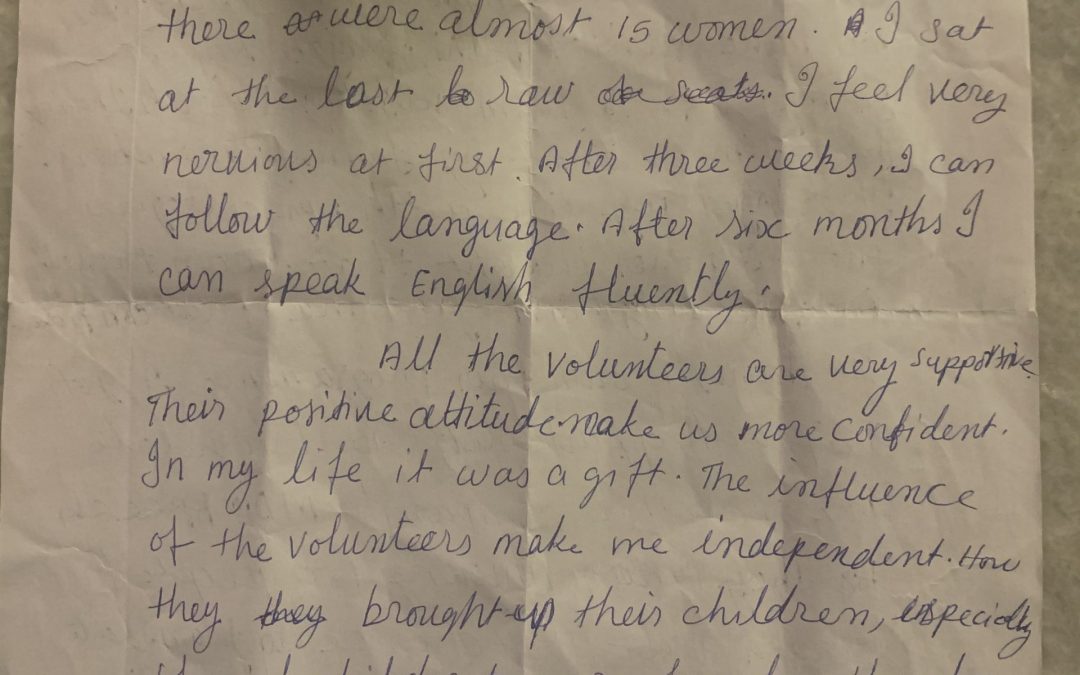 there were almost 15 women. I sat
at the last raw seats. I feel very
nervious at first. After three weeks, I can
follow the language. After six months I
can speak English fluently.
All the volunteers are very supportive.
Their positive attitude make us more confident.
In my life it was a gift. The influence
of the volunteers make me independent. How
they they brought up their children, especially